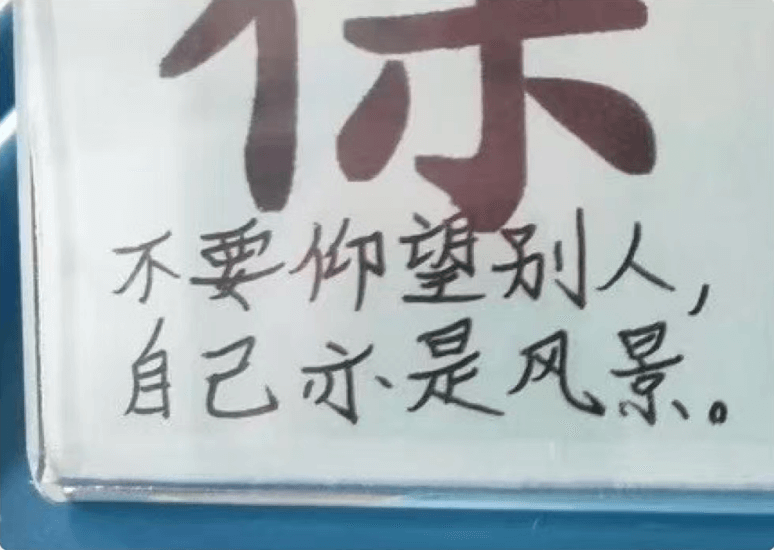 不要仰望别人，
自己亦是风景。